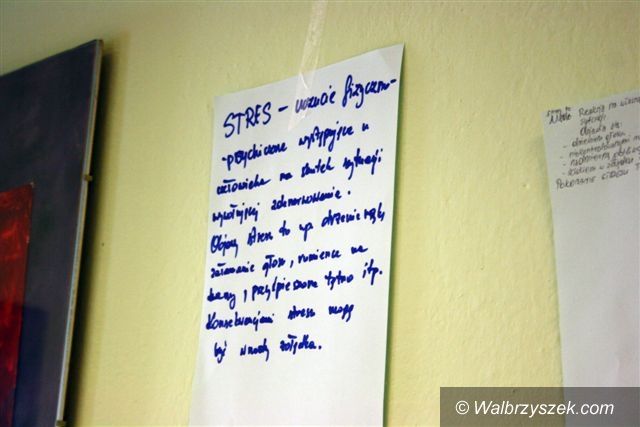 STRES – uczucie fizyczno-
-psychiczne występujące u
człowieka na skutek sytuacji
wywołującej zdenerwowanie.
Objawy stresu to np drżenie rąk,
załamanie głosu, rumieńce na
twarzy, przyśpieszone tętno itp.
Konsekwencjami stresu mogą
być wrzody żołądka.
Reakcja na
sytuacji
Objawia się:
- drżeniem głosu
© Walbrzyszek.com